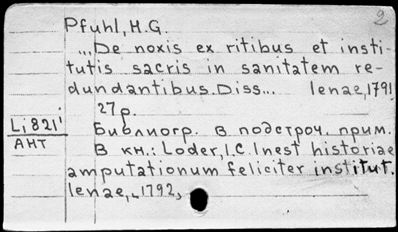 2
Pfuhl, H.G.
„De noxis ex ritibus et insti-
tutis sacris in sanitatem re-
dundantibus. Diss... Ienae, 1791
27 p.
Li 821'
АНТ
Библиогр. в подстроч. прим.
В кн.: Loder, I.C. Inest historiae
amputationum feliciter institut.
Ienae, 1792,